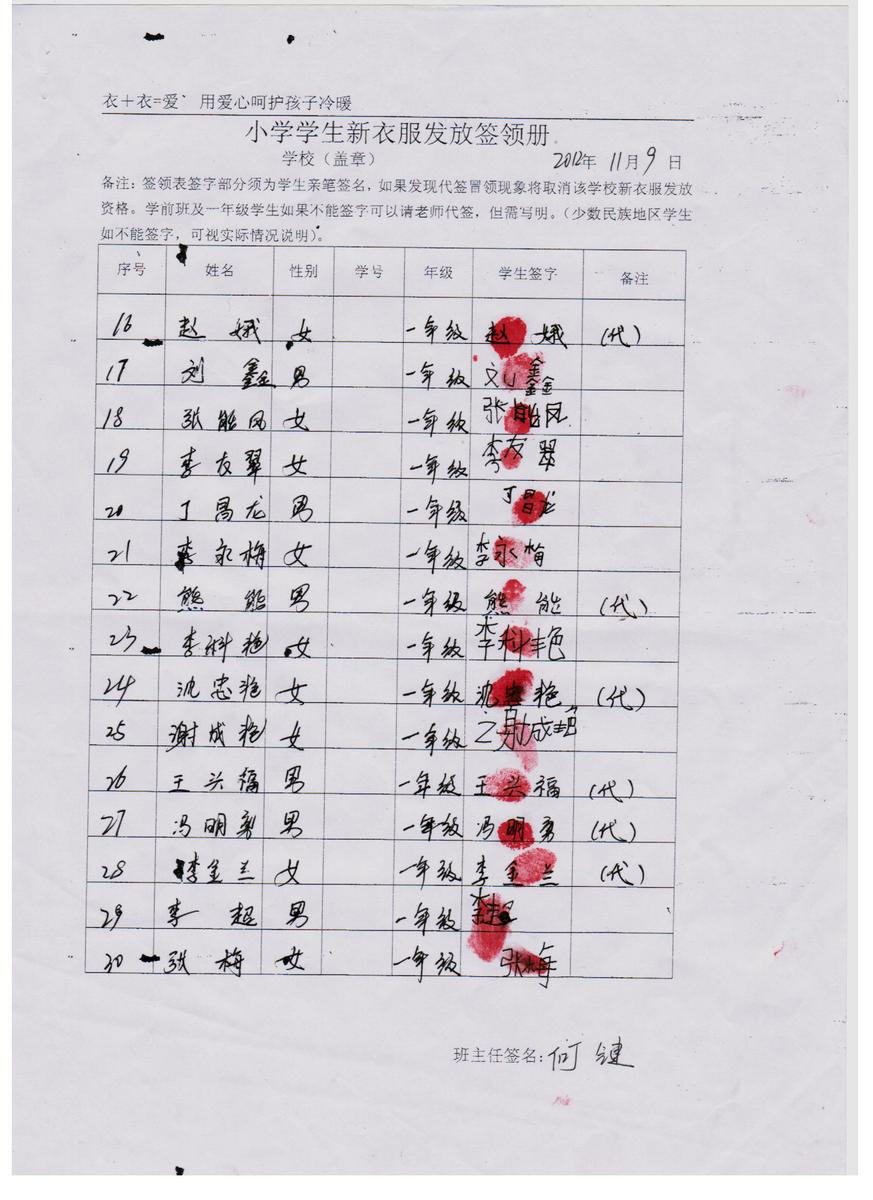 衣+衣=爱 用爱心呵护孩子冷暖
小学学生新衣服发放签领册
学校（盖章） 2012年 11月 9 日
备注：签领表签字部分须为学生亲笔签名，如果发现代签冒领现象将取消该学校新衣服发放
资格。学前班及一年级学生如果不能签字可以请老师代签，但需写明。（少数民族地区学生
如不能签字，可视实际情况说明）。
序号 姓名 性别 学号 年级 学生签字 备注
16 赵娥 女 一年级 赵娥 （代）
17 刘鑫 男 一年级 刘鑫
18 张能凤 女 一年级 张能凤
19 李友翠 女 一年级 李友翠
20 丁昌龙 男 一年级 丁昌龙
21 李永梅 女 一年级 李永梅
22 熊能 男 一年级 熊能 （代）
23 李科艳 女 一年级 李科艳
24 沈忠艳 女 一年级 沈忠艳 （代）
25 谢成艳 女 一年级 谢成艳
26 王兴福 男 一年级 王兴福 （代）
27 冯明勇 男 一年级 冯明勇 （代）
28 李金兰 女 一年级 李金兰 （代）
29 李超 男 一年级 李超
30 张梅 女 一年级 张梅
班主任签名：何键